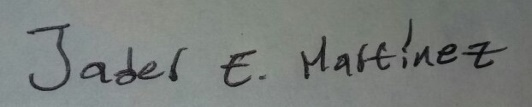 Jader E. Martínez